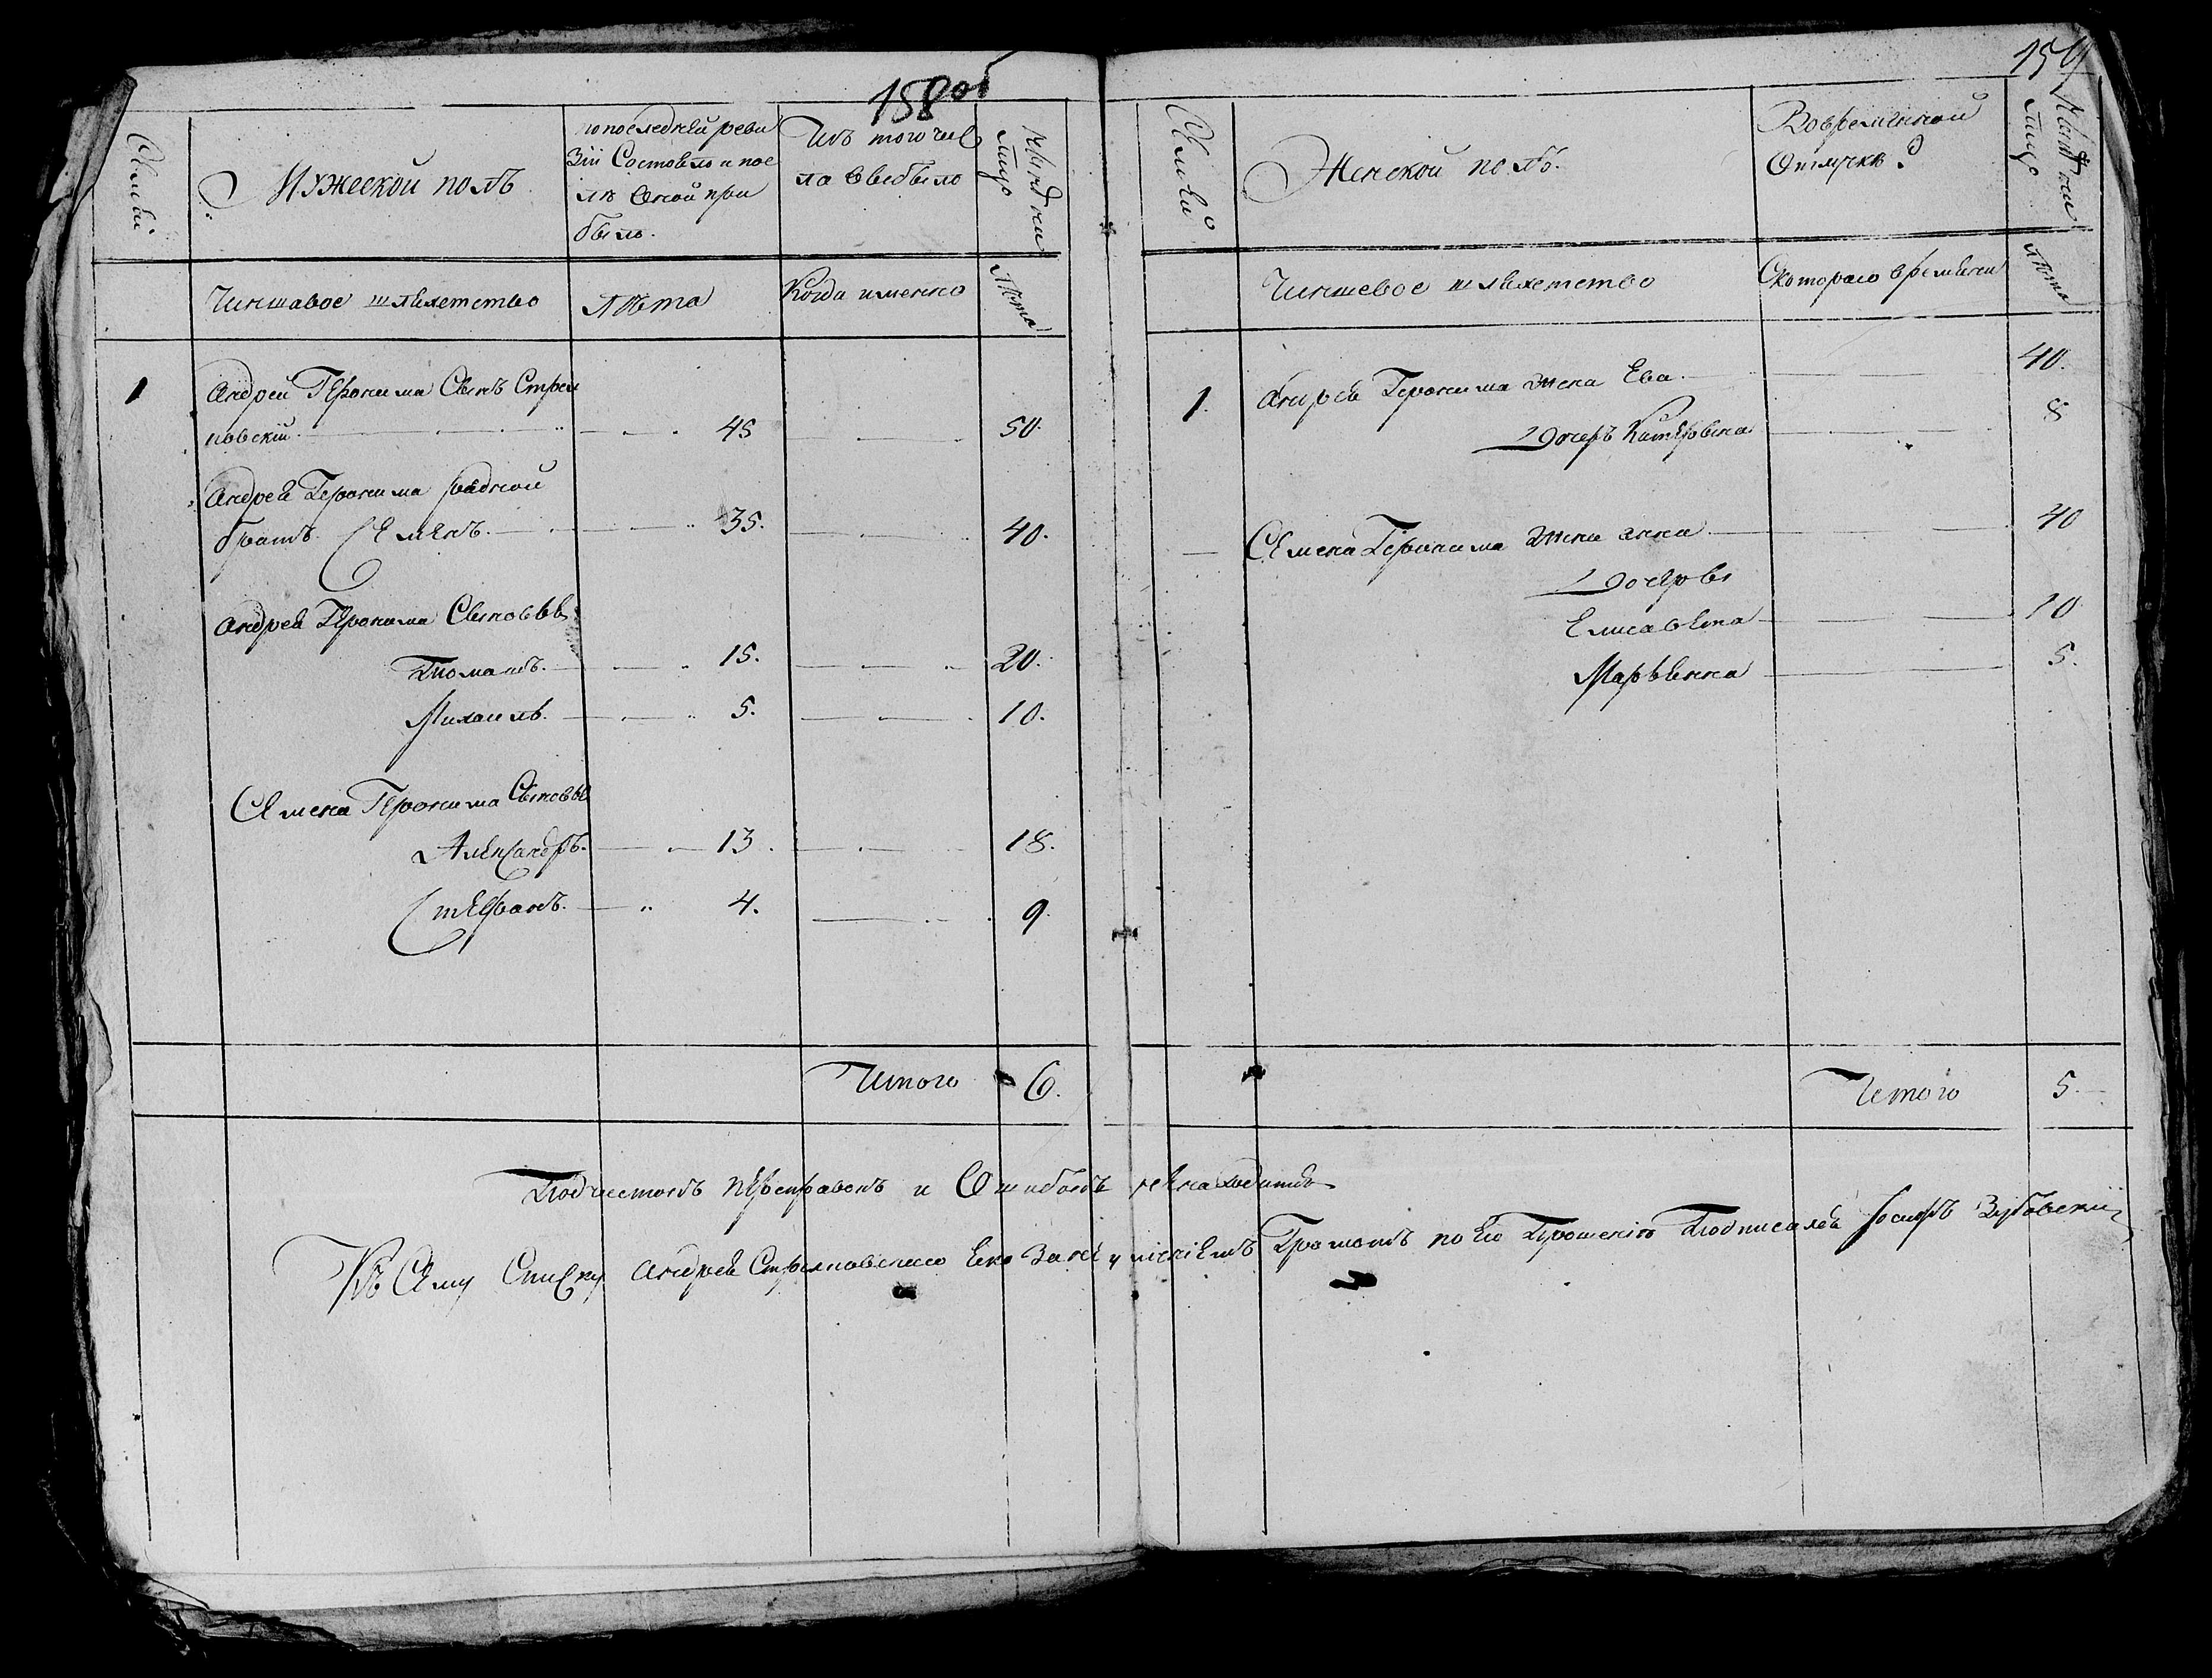 158об
159
Семьи
Мужеской полъ
по последней реви
зiи Состояло и пос
лѣ Оной при
было.
Изъ того чис
ла Выбыло
Ныне на
лицо
Чиншавое шляхетство
Лѣта
Когда именно
Лѣта
1
Андрей Геронима Сынъ Стреп
повскiй 45 50.
Андрея Геронима родной
братъ Семенъ. 35. 40.
Андрея Геронима Сыновья
Томашъ. 15. 20.
Михаилъ. 5. 10.
Семена Геронима Сыновья
Александръ. 13. 18.
Стефанъ. 4. 9.
Итого 6.
Семьи
Женской полъ.
Вовременной
Отлучке
Ныне на
лицо
Чиншевое шляхетство
Скотораго времини
Лѣта
1. Андрея Геронима жена Ева. 40.
Дочерь 8
Семена Геронима жена анна 40
Дочеры
Елисавета 10
Марьянна 5.
Итого 5.
Подчистокъ переправокъ и Ошибокъ ненаходитса
Къ Сему Списку Андрея Стреповскаго Ево Занеумениемъ Грамотъ по Его Прошению Подписался Иосифъ Зубовский